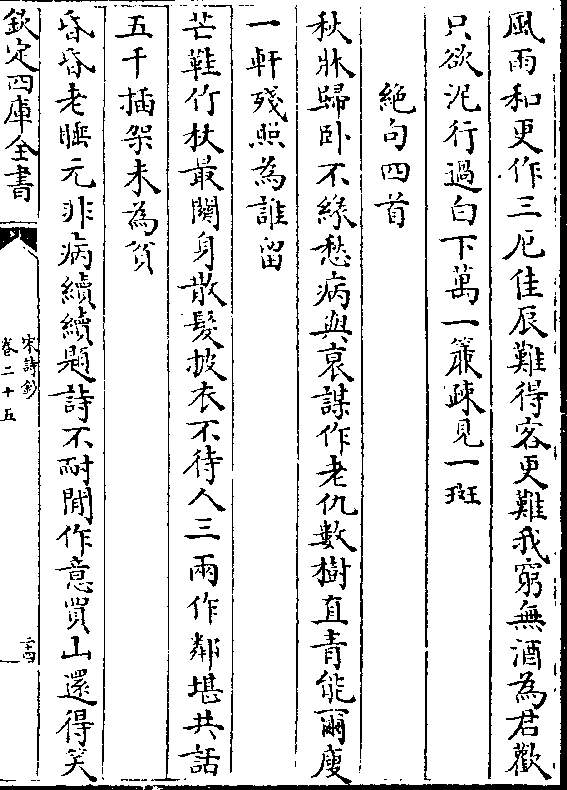 風雨和更作三厄佳辰難得客更難我窮無酒為君歡
只欲泥行過白下萬一簾疎見一斑
絶句四首
秋牀歸卧不緣愁病與衰謀作老仇數樹直青能爾廋
一軒殘照為誰留
芒鞵竹杖最關身散髮披衣不待人三兩作鄰堪共話
五千插架未為貧
昏昏老睡元非病續續題詩不耐閒作意買山還得笑
欽定四庫全書
宋詩鈔
卷二十五